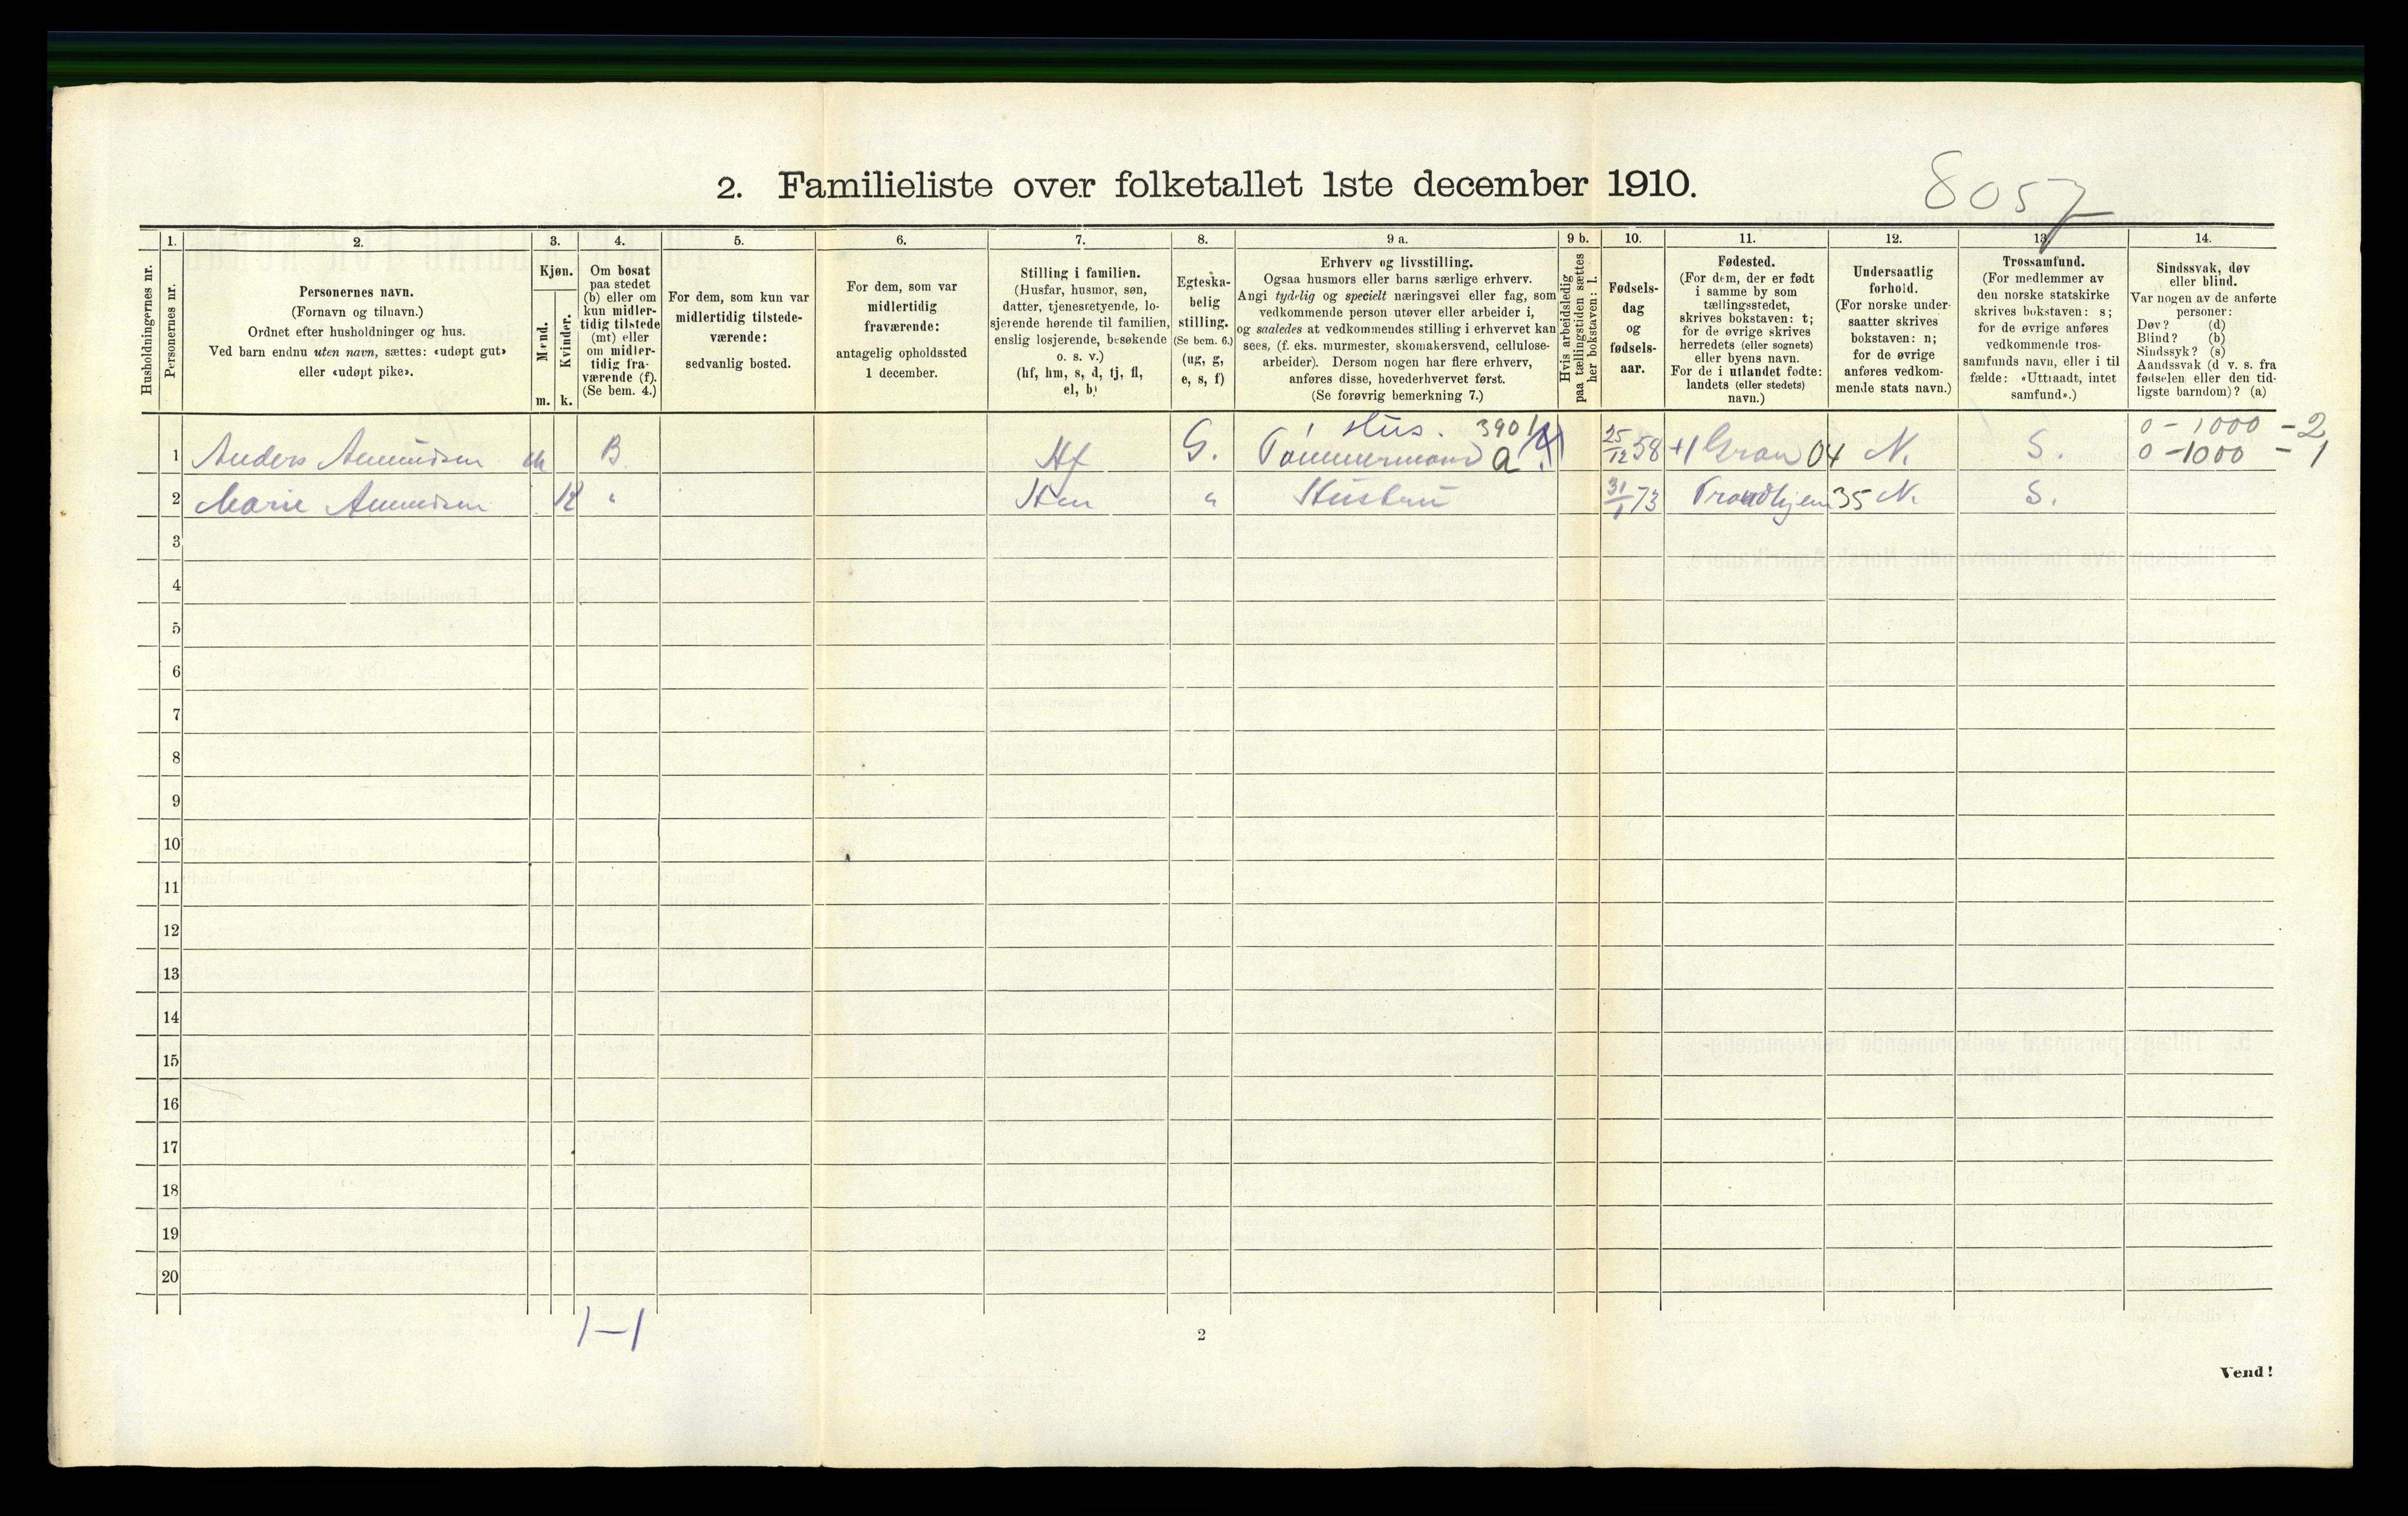 8057
2. Familieliste over folketallet 1ste december 1910.
Husholdningernes nr.
1.
Personernes nr.
2.
Personernes navn.
(Fornavn og tilnavn.)
Ordnet efter husholdninger og hus.
Ved barn endnu uten navn, sættes: «udøpt gut»
eller «udøpt pike».
3.
Kjøn.
Mænd.
m.
Kvinder.
k.
4.
Om bosat
paa stedet
(b) eller om
kun midler-
tidig tilstede
(mt) eller
om midler-
tidig fra-
værende (f).
(Se bem. 4.)
5.
For dem, som kun var
midlertidig tilstede-
værende:
sedvanlig bosted.
6.
For dem, som var
midlertidig
fraværende:
antagelig opholdssted
1 december.
7.
Stilling i familien.
(Husfar, husmor, søn,
datter, tjenestetyende, lo-
sjerende hørende til familien,
enslig losjerende, besøkende
o. s. v.)
(hf, hm, s, d, tj, fl,
el, b)
8.
Egteska-
belig
stilling.
(Se bem. 6.)
(ug, g,
e, s, f)
9 a.
Erhverv og livsstilling.
Ogsaa husmors eller barns særlige erhverv.
Angi tydelig og specielt næringsvei eller fag, som
vedkommende person utøver eller arbeider i,
og saaledes at vedkommendes stilling i erhvervet kan
sees, (f. eks. murmester, skomakersvend, cellulose-
arbeider). Dersom nogen har flere erhverv,
anføres disse, hovederhvervet først.
(Se forøvrig bemerkning 7.)
9 b.
Hvis arbeidsledig
paa tællingstiden sættes
her bokstaven: l.
10.
Fødsels-
dag
og
fødsels-
aar.
11.
Fødested.
(For dem, der er født
i samme by som
tællingsstedet,
skrives bokstaven: t;
for de øvrige skrives
herredets (eller sognets)
eller byens navn.
For de i utlandet fødte:
landets (eller stedets)
navn.)
12.
Undersaatlig
forhold.
(For norske under-
saatter skrives
bokstaven: n;
for de øvrige
anføres vedkom-
mende stats navn.)
13.
Trossamfund.
(For medlemmer av
den norske statskirke
skrives bokstaven: s;
for de øvrige anføres
vedkommende tros-
samfunds navn, eller i til
fælde: «Uttraadt, intet
samfund».)
14.
Sindssvak, døv
eller blind.
Var nogen av de anførte
personer:
Døv? (d)
Blind? (b)
Sindssyk? (s)
Aandssvak (d v. s. fra
fødselen eller den tid-
ligste barndom)? (a)
Hus. 3901 0 - 1000 - 2
1 Anders Amundsen m B. Hf G. Tømmermand a 25/12 58 +1 Gran 04 N. S. 0 - 1000 - 1
2 Marie Amundsen K " Hm " Hustru 31/1 73 Trondhjem 35 N. S.
3
4
5
6
7
8
9
10
11
12
13
14
15
16
17
18
19
20
1-1
2
Vend!